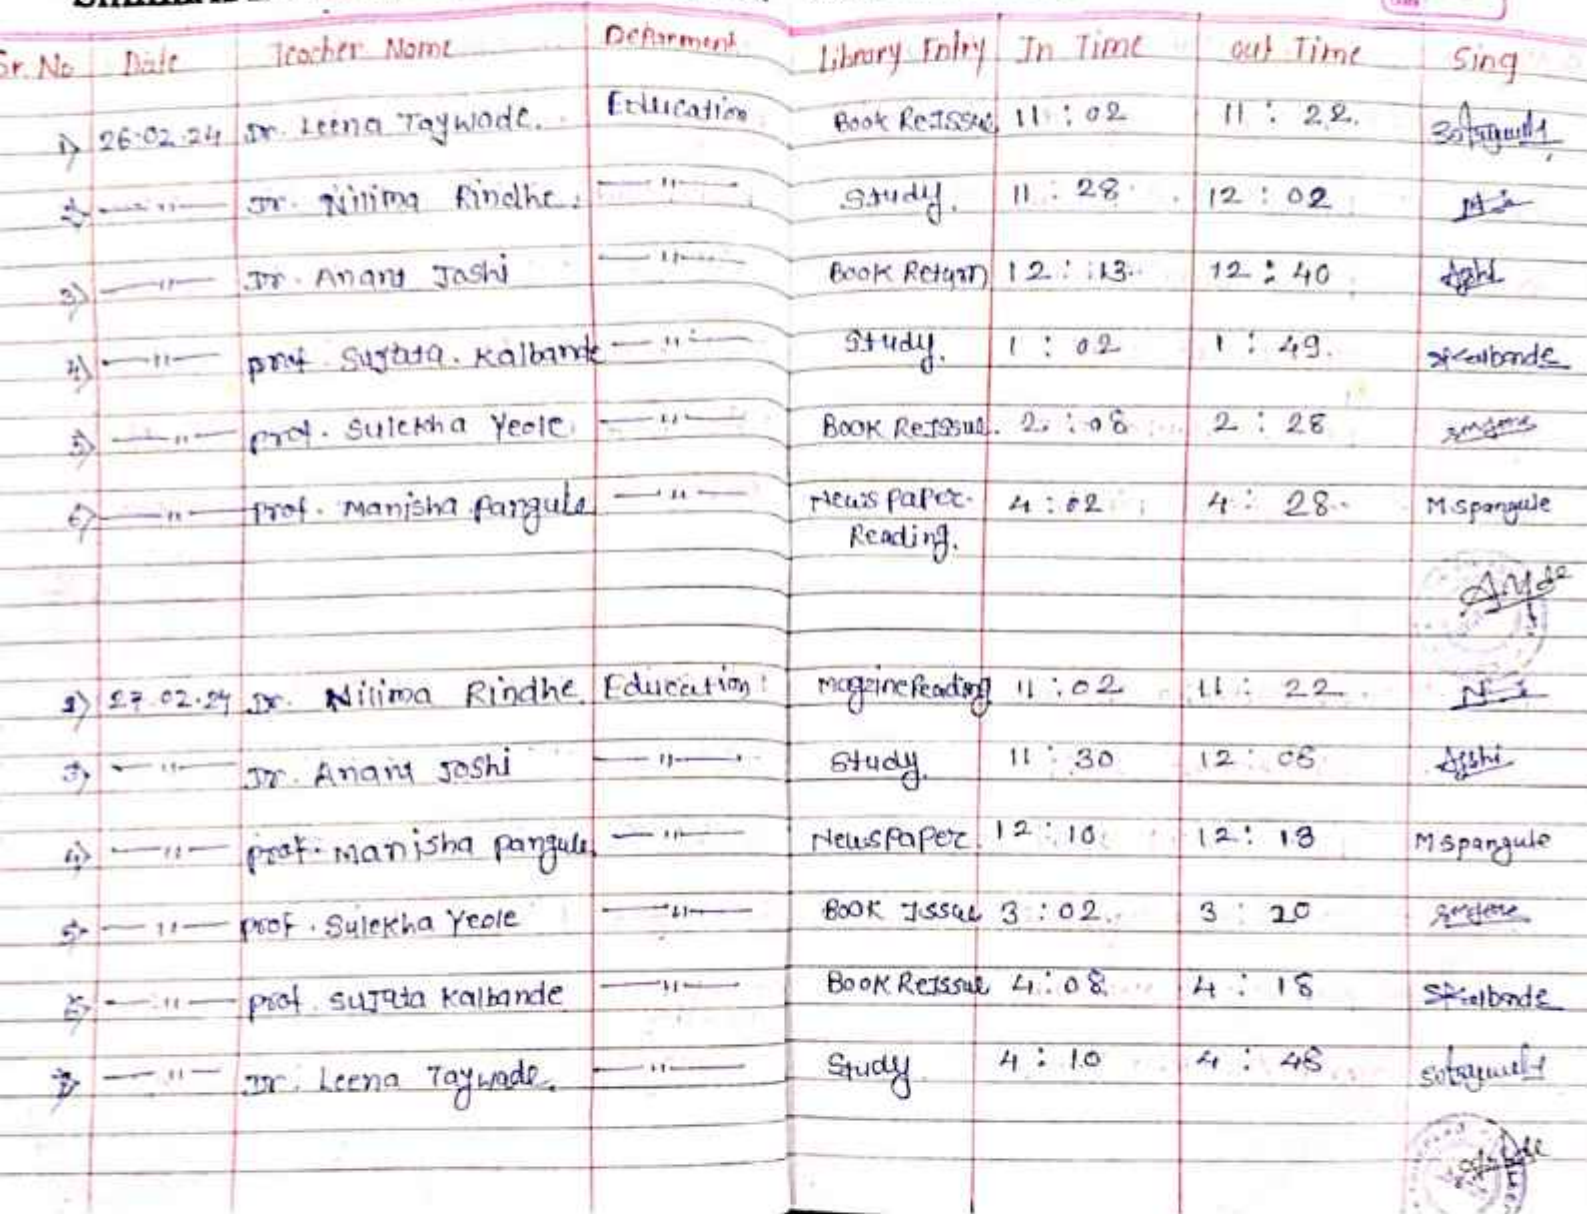 Sr. No Date Teacher Name Deparment Library Entry In Time out Time Sing
1) 26.02.24 Dr. Leena Taywade. Education Book ReIssue 11 : 02 11 : 22.
2) —"— Dr. Nilima Rindhe. —"— Study. 11 : 28 12 : 02
3) —"— Dr. Anant Joshi —"— Book Return 12 : 13 12 : 40
4) —"— prof Sujata. Kalbande —"— Study. 1 : 02 1 : 49. Kalbande
5) —"— prof. Sulekha Yeole. —"— Book ReIssue. 2 : 08 2 : 28
6) —"— prof. Manisha Pangule —"— News paper 4 : 02 4 : 28 M spangule
Reading.
27.02.24 Dr. Nilima Rindhe Education magzine Reading 11 : 02 11 : 22
3) —"— Dr. Anant Joshi —"— Study. 11 : 30 12 : 08 Joshi
4) —"— prof. Manisha Pangule —"— Newspaper 12 : 10 12 : 18 M spangule
5) —"— prof. Sulekha Yeole —"— Book Issue 3 : 02 3 : 20
—"— prof. Sujata Kalbande —"— Book ReIssue 4 : 08 4 : 18 Kalbande
—"— Dr. Leena Taywade. —"— Study 4 : 10 4 : 48